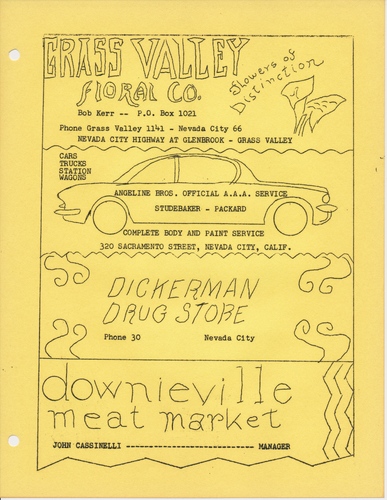 GRASS VALLEY
FLORAL CO.
Flowers of
Distinction
Bob Kerr -- P.O. Box 1021
Phone Grass Valley 1141 - Nevada City 66
NEVADA CITY HIGHWAY AT GLENBROOK - GRASS VALLEY
CARS
TRUCKS
STATION
WAGONS
ANGELINE BROS. OFFICIAL A.A.A. SERVICE
STUDEBAKER - PACKARD
COMPLETE BODY AND PAINT SERVICE
320 SACRAMENTO STREET, NEVADA CITY, CALIF.
DICKERMAN
DRUG STORE
Phone 30 Nevada City
downieville
meat market
JOHN CASSINELLI -------------------------- MANAGER